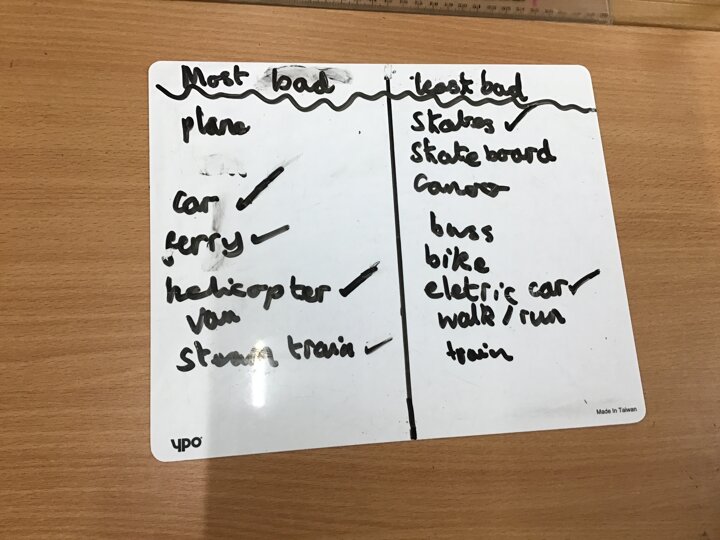 Most bad
plane
car ✓
ferry ✓
helicopter ✓
van
steam train ✓
least bad
skates ✓
skateboard
canoe
buss
bike
eletric car ✓
walk/run
train
Made in Taiwan
ypo